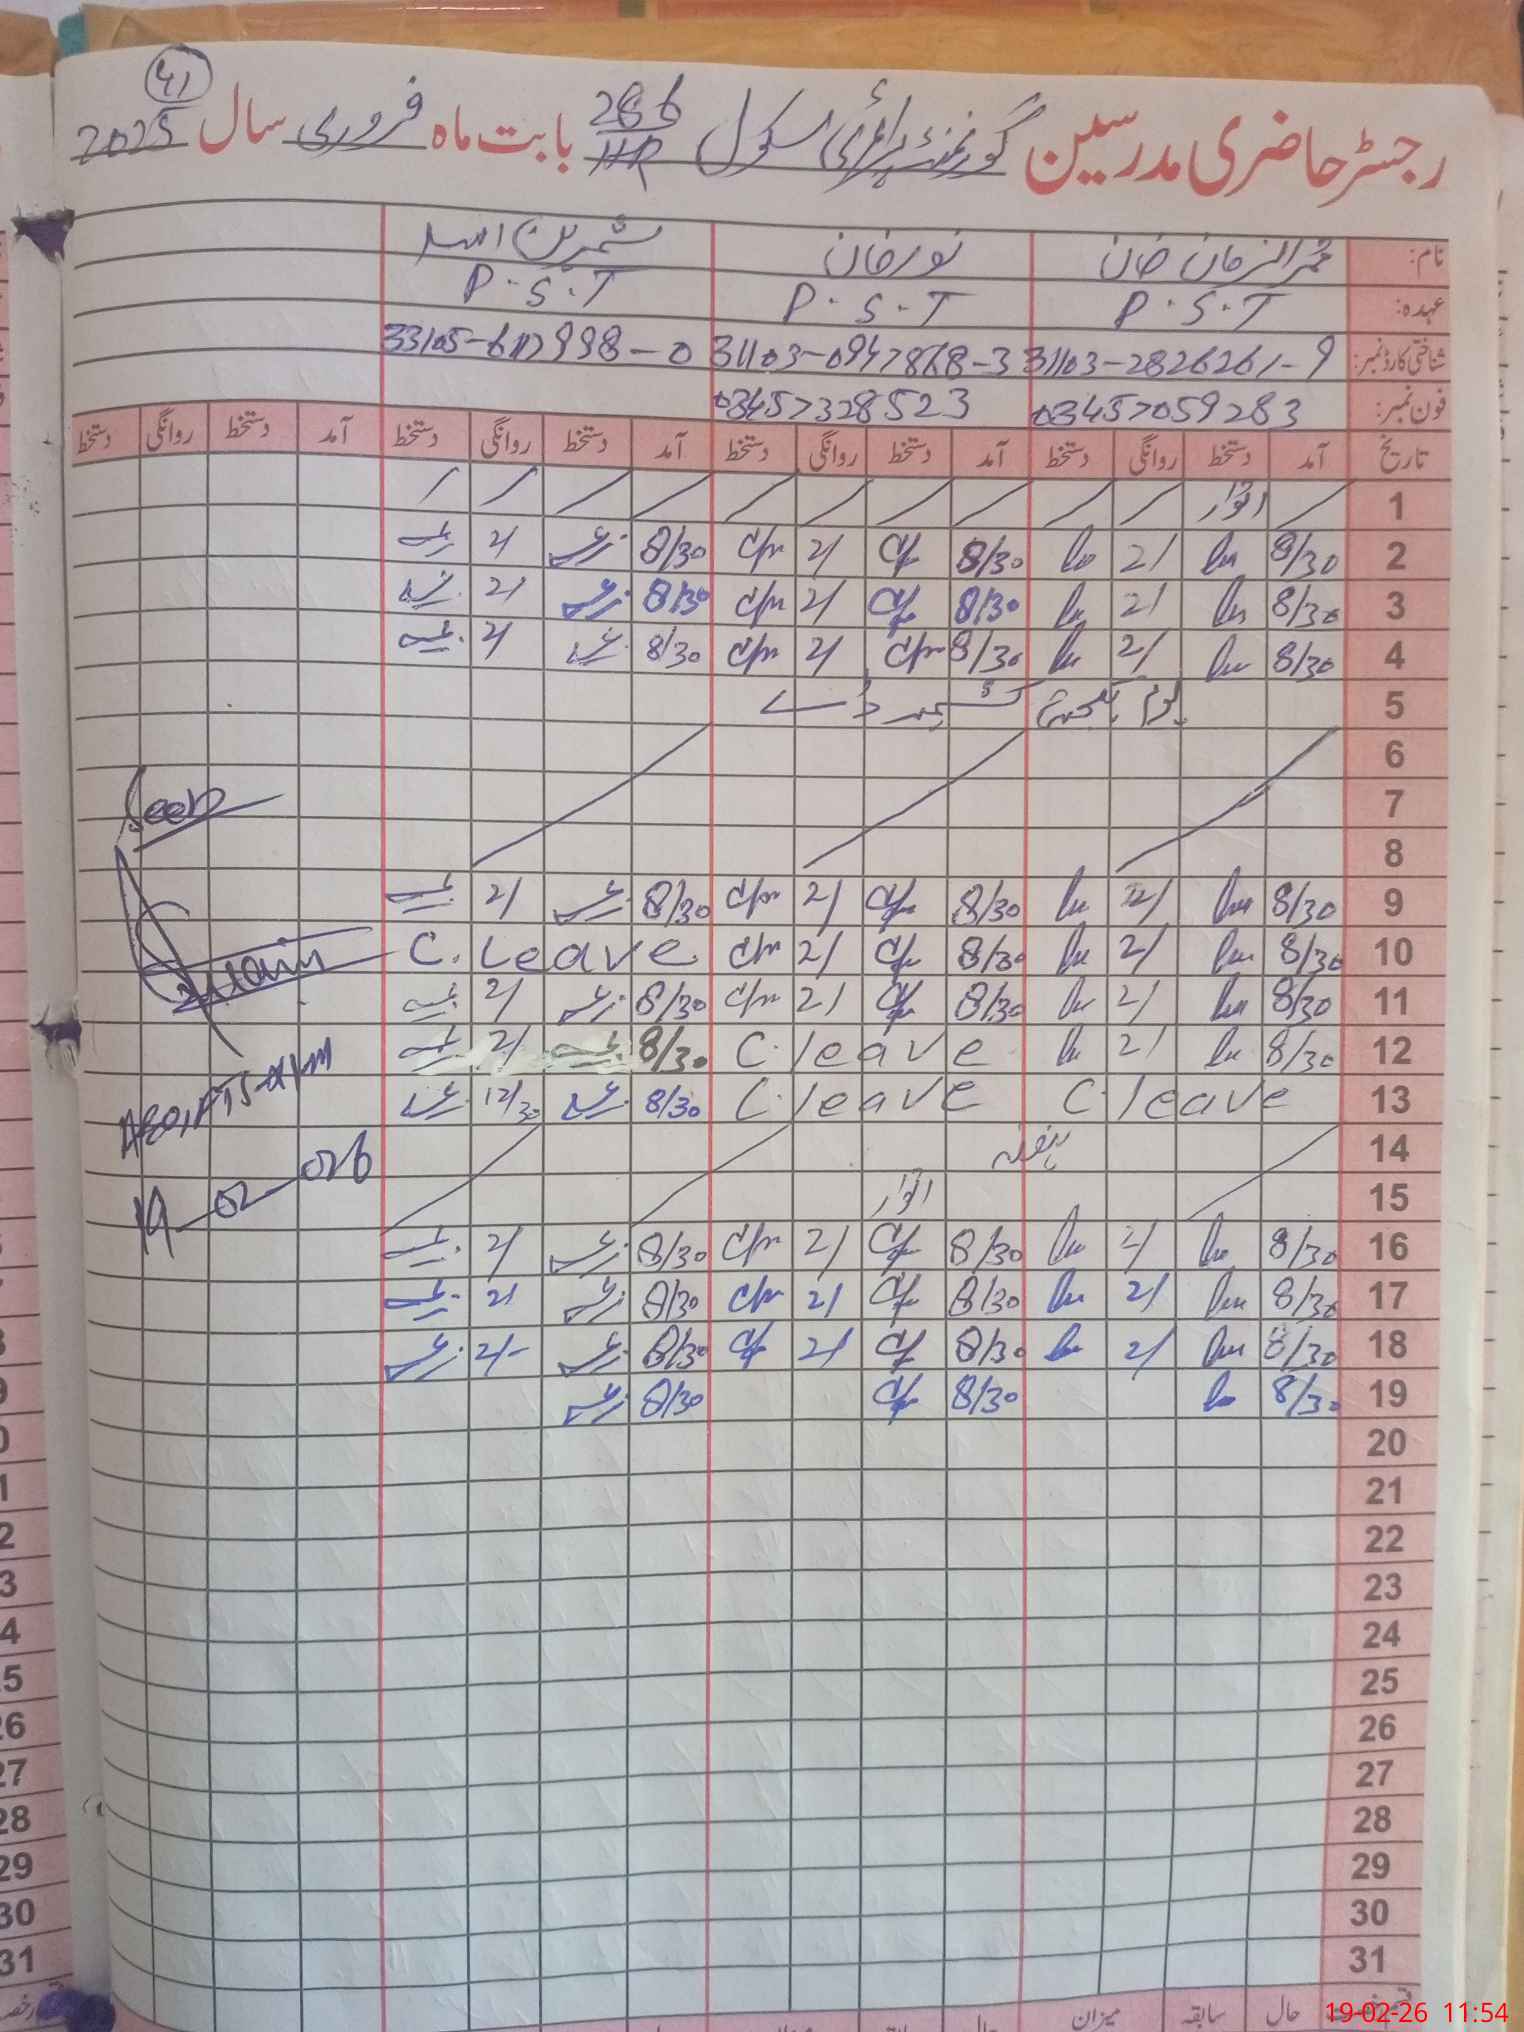 41
رجسٹر حاضری مدرسین گورنمنٹ پرائمری سکول 286/HR بابت ماہ فروری سال 2025
نام: قمرالزمان خان نور خان ثمرین اسد
عہدہ: P.S.T P.S.T P.S.T
شناختی کارڈ نمبر: 31103-2826261-9 31103-0947868-3 33105-6112998-0
فون نمبر: 03457059283 03457328523
تاریخ آمد دستخط روانگی دستخط آمد دستخط روانگی دستخط آمد دستخط روانگی دستخط آمد دستخط روانگی دستخط
1 اتوار
2 8/30 2/ 8/30 2/ 8/30 2/
3 8/30 2/ 8/30 2/ 8/30 2/
4 8/30 2/ 8/30 2/ 8/30 2/
5 یوم یکجہتی کشمیر ڈے
6
7
Seen
8
9 8/30 2/ 8/30 2/ 8/30 2/
10 8/30 2/ 8/30 2/ C. Leave
11 8/30 2/ 8/30 2/ 8/30 2/
12 8/30 2/ C. leave 8/30 2/
13 C. leave C. leave 8/30 12/30
14 ہفتہ
15 اتوار
19-02-026
16 8/30 2/ 8/30 2/ 8/30 2/
17 8/30 2/ 8/30 2/ 8/30 2/
18 8/30 2/ 8/30 2/ 8/30 2/-
19 8/30 8/30 8/30
20
21
22
23
24
25
26
27
28
29
30
31
میزان سابقہ حال
19-02-26 11:54